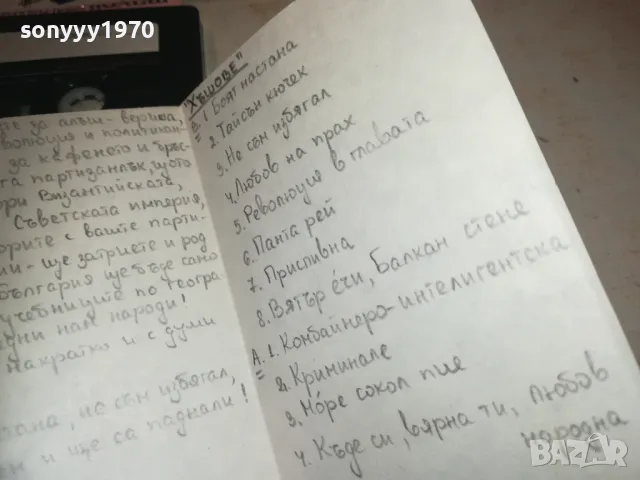 sonyyy1970
те за алъш-вериша,
волюция и политикан-
за кафенето и
га партизанлък, щото
ори Византийската,
Съветската империя,
орите с вашите парти-
ии - ще затриете и род
България ще бъде само
учебниците по геогра-
едни нам народи!
Накратко и с души
стана, не съм избягал,
и ще са паднали!
"ХЪШОВЕ"
1. Боят настана
2. Тайсън кючек
3. Не съм избягал
4. Любов на прах
5. Революция в главата
6. Панта рей
7. Приспивна
8. Вятър ечи, Балкан стене
А. 1. Комбайнеро-интелигентска
2. Криминале
3. Мо́ре сокол пие
4. Къде си, вярна ти, любов
народна
bazar.bg